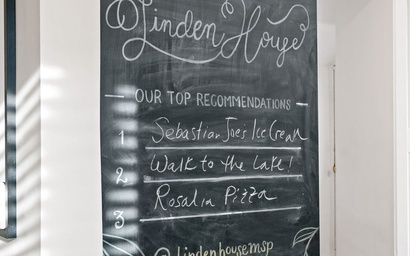 Linden House
OUR TOP RECOMMENDATIONS
1 Sebastian Joes Ice Cream
2 Walk to the Lake!
3 Rosalia Pizza
@lindenhousemsp